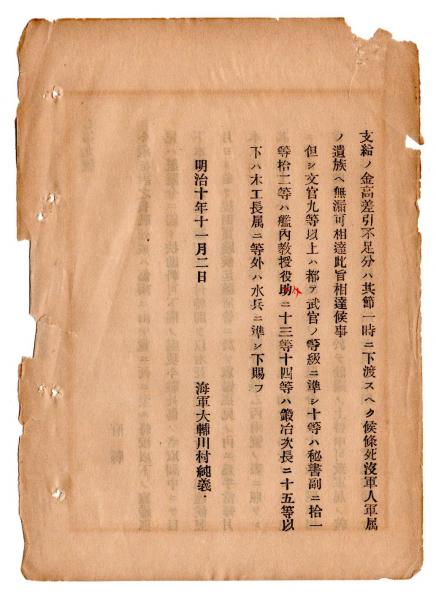 支給ノ金高差引不足分ハ其節一時ニ下渡スヘク候條死沒軍人軍属
ノ遺族ヘ無漏可相達此旨相達候事
但シ文官九等以上ハ都テ武官ノ等級ニ準シ十等ハ秘書副ニ拾一
等拾二等ハ艦內教授役助ニ十三等十四等ハ鍛冶次長ニ十五等以
下ハ木工長属ニ等外ハ水兵ニ準シ下賜フ
明治十年十一月二日
海軍大輔川村純義